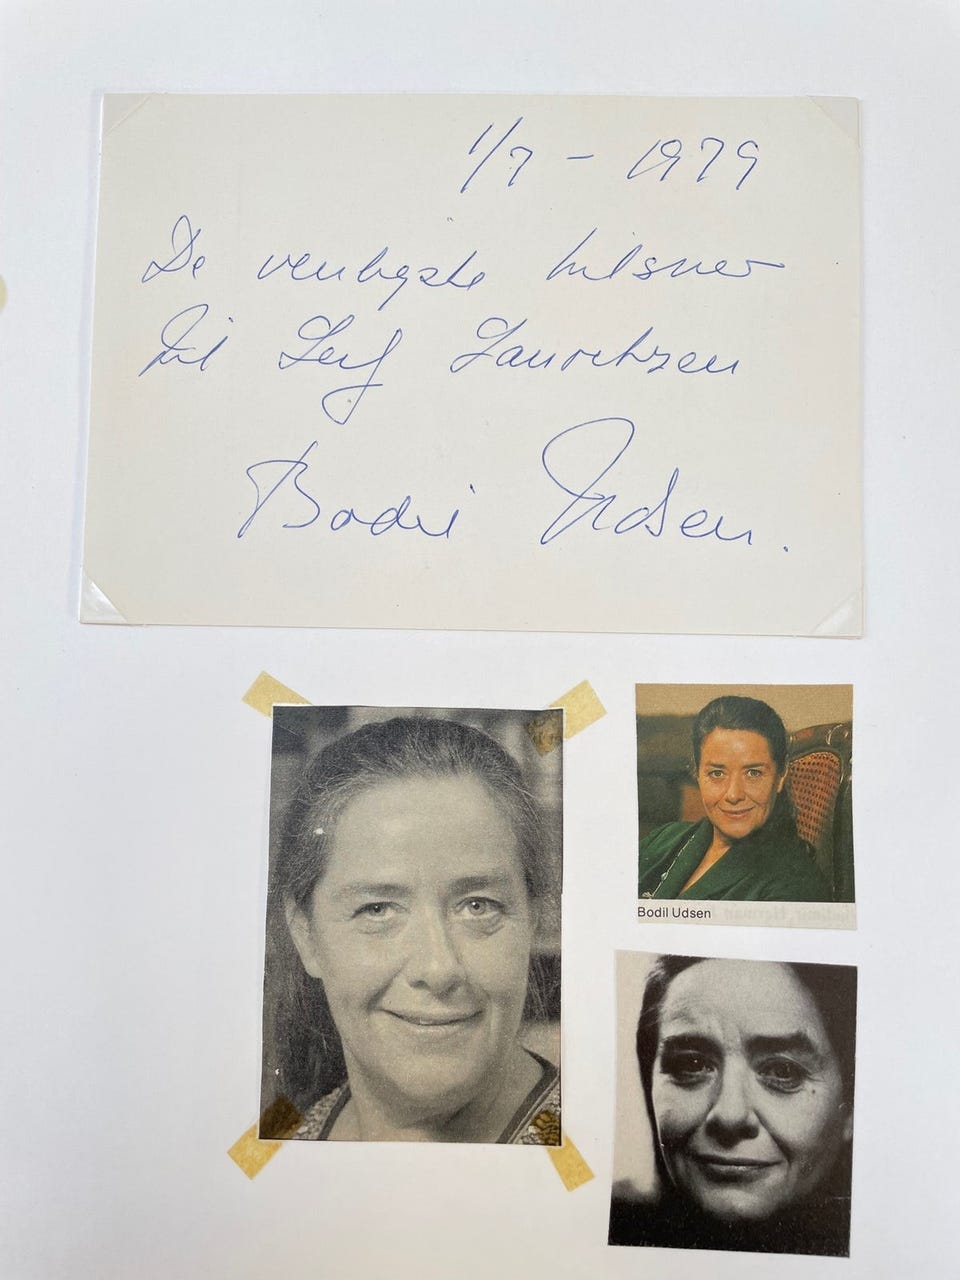 1/7 - 1979
De venligste hilsner
til Leif Lauritzen
Bodil Udsen.
Bodil Udsen